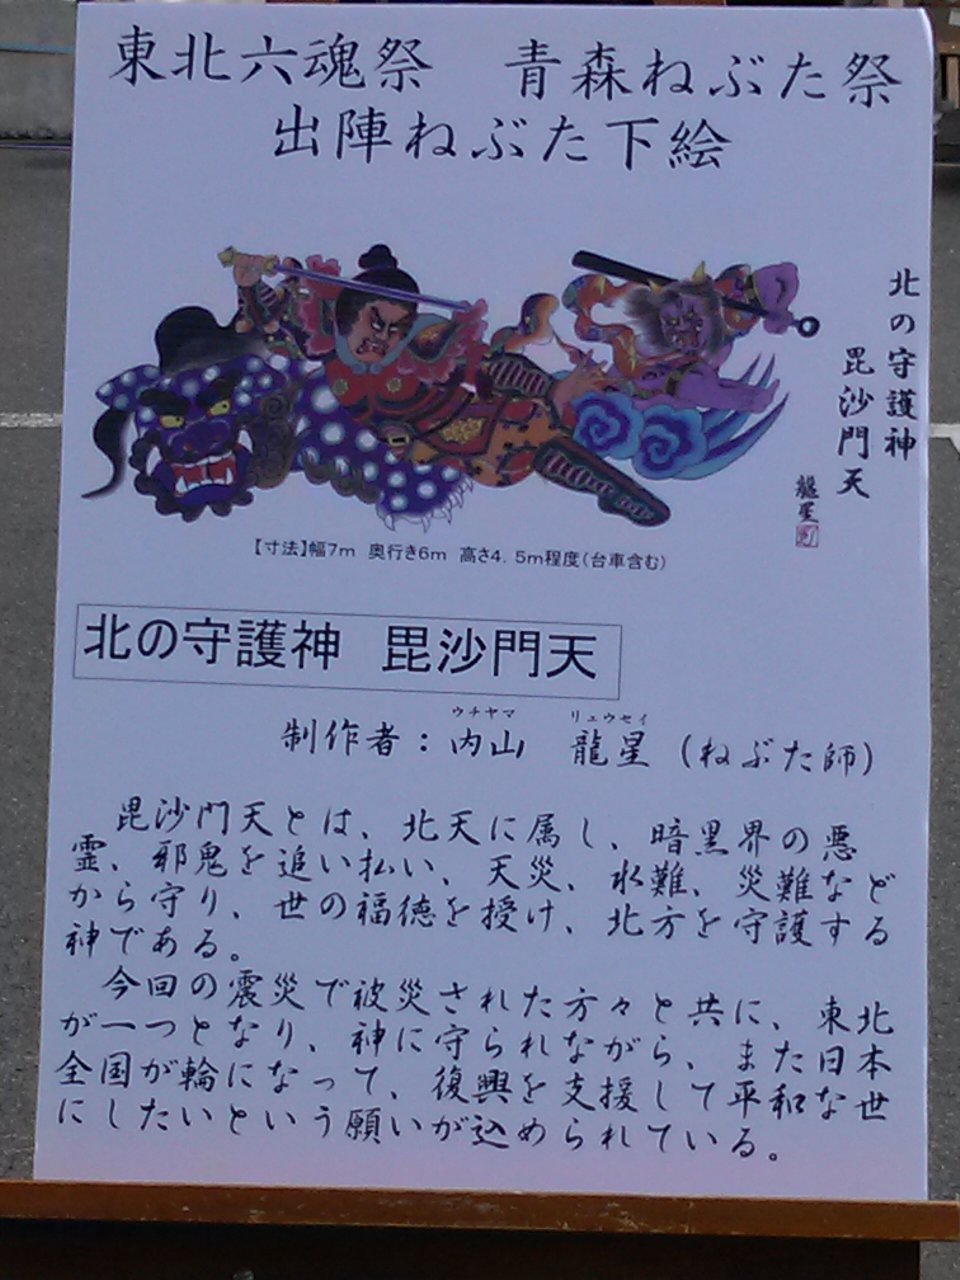 東北六魂祭　青森ねぶた祭
出陣ねぶた下絵
北の守護神
毘沙門天
龍星
【寸法】幅7m　奥行き6m　高さ4．5m程度（台車含む）
北の守護神　毘沙門天
ウチヤマ　リュウセイ
制作者：内山　龍星（ねぶた師）
毘沙門天とは、北天に属し、暗黒界の悪
霊、邪鬼を追い払い、天災、水難、災難など
から守り、世の福徳を授け、北方を守護する
神である。
今回の震災で被災された方々と共に、東北
が一つとなり、神に守られながら、また日本
全国が輪になって、復興を支援して平和な世
にしたいという願いが込められている。